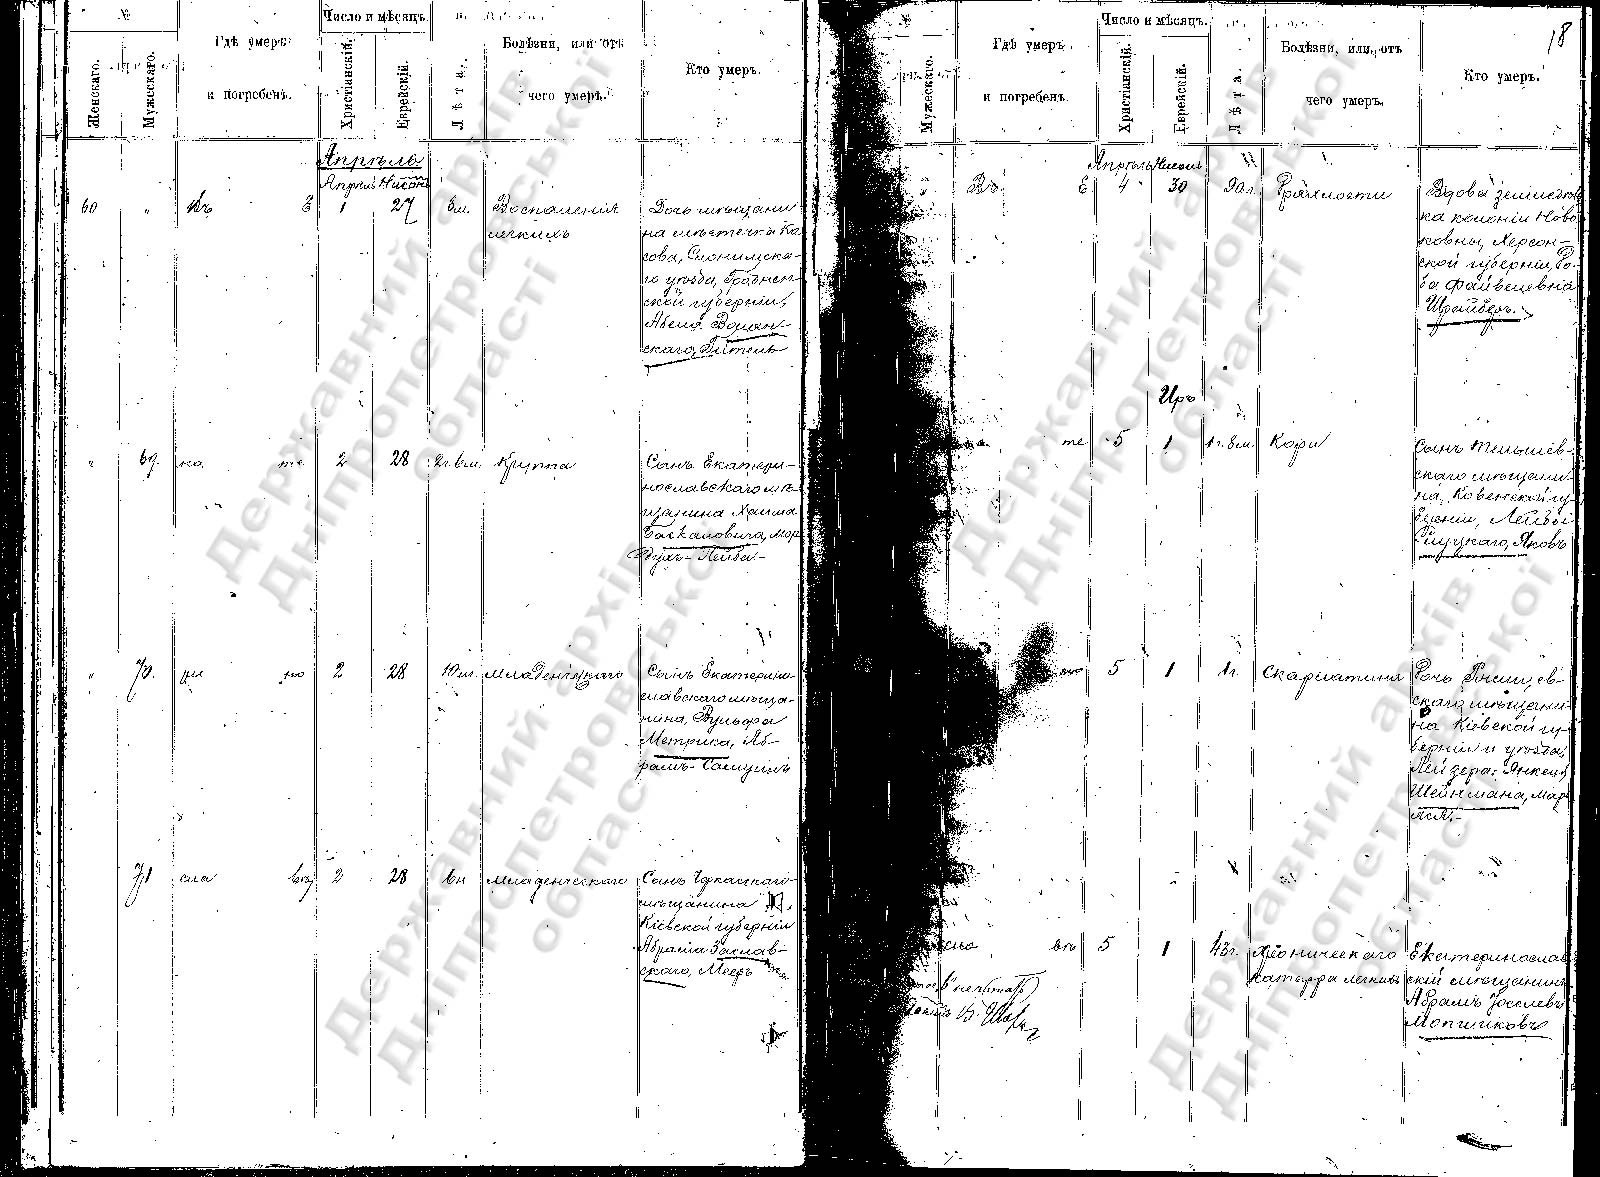 №
Женскаго.
Мужескаго.
Гдѣ умеръ
и погребенъ.
Число и мѣсяцъ.
Христіанскій.
Еврейскій.
Лѣта.
Болѣзни, или отъ
чего умеръ.
Кто умеръ.
Апрѣль
Апрѣль Нисонъ
60 " Въ Е 1 27 8 м. Воспаленія
легкихъ
Дочь мѣщани-
на мѣстечка Ко-
сова, Слонимска-
го уѣзда, Гроднен-
ской губерніи,
Абеля
скаго, Гитель
" 69. ка те 2 28 2 г. 6 м. Круппа
Сынъ Екатери-
нославскаго мѣ-
щанина Хаима
Баскаловича, Мор-
духъ-Лейба-
" 70. ри но 2 28 10 м. Младенческаго
Сынъ Екатерино-
славскаго мѣща-
нина, Вульфа
Метрика, Аб-
рамъ-Самуилъ
71 сла въ 2 28 Младенческаго
Сынъ
мѣщанина
Кіевской губерніи
Абрама Заслав-
скаго, Мееръ
№
Мужескаго.
Гдѣ умеръ
и погребенъ.
Число и мѣсяцъ.
Христіанскій.
Еврейскій.
Лѣта.
Болѣзни, или отъ
чего умеръ.
Кто умеръ.
18
Апрѣль Нисонъ
Въ Е 4 30 90 г. Дряхлости
Вдова
ка колоніи Ново-
ковно, Херсон-
ской губерніи, Ро-
за Файвелевна
Шрайберъ.
Иръ
те 5 1 1 г. 8 м. Кори
Сынъ Тельшев-
скаго мѣщани-
на, Ковенской гу-
берніи, Лейбы
Слуцкаго, Яковъ
но 5 1 1 г. Скарлатина
Дочь Ржищев-
скаго мѣщани-
на Кіевской гу-
берніи и уѣзда,
Лейзера-Янкеля
Шейнмана, Мар-
яся.-
сла въ 5 1 43 г. Хроническаго
катарра легкихъ
Екатеринослав-
скій мѣщанинъ
Абрамъ Іоселевъ
Мопчиковъ
Державний архів
Дніпропетровської
області